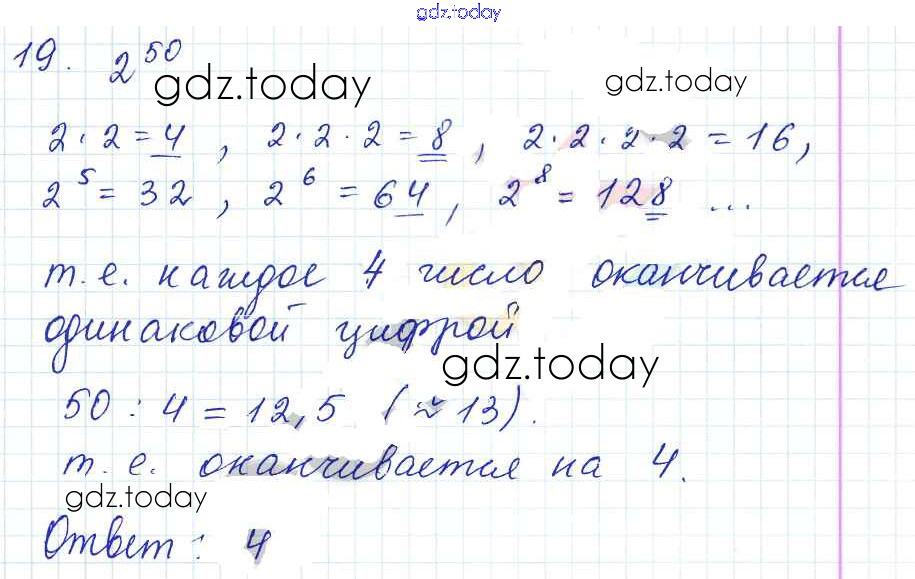 gdz.today
19. 2^50
gdz.today
gdz.today
2·2=4, 2·2·2=8, 2·2·2·2=16,
2^5=32, 2^6=64, 2^8=128 ...
т.е. каждое 4 число оканчивается
одинаковой цифрой
gdz.today
50:4=12,5 (≈13).
т.е. оканчивается на 4.
gdz.today
Ответ: 4